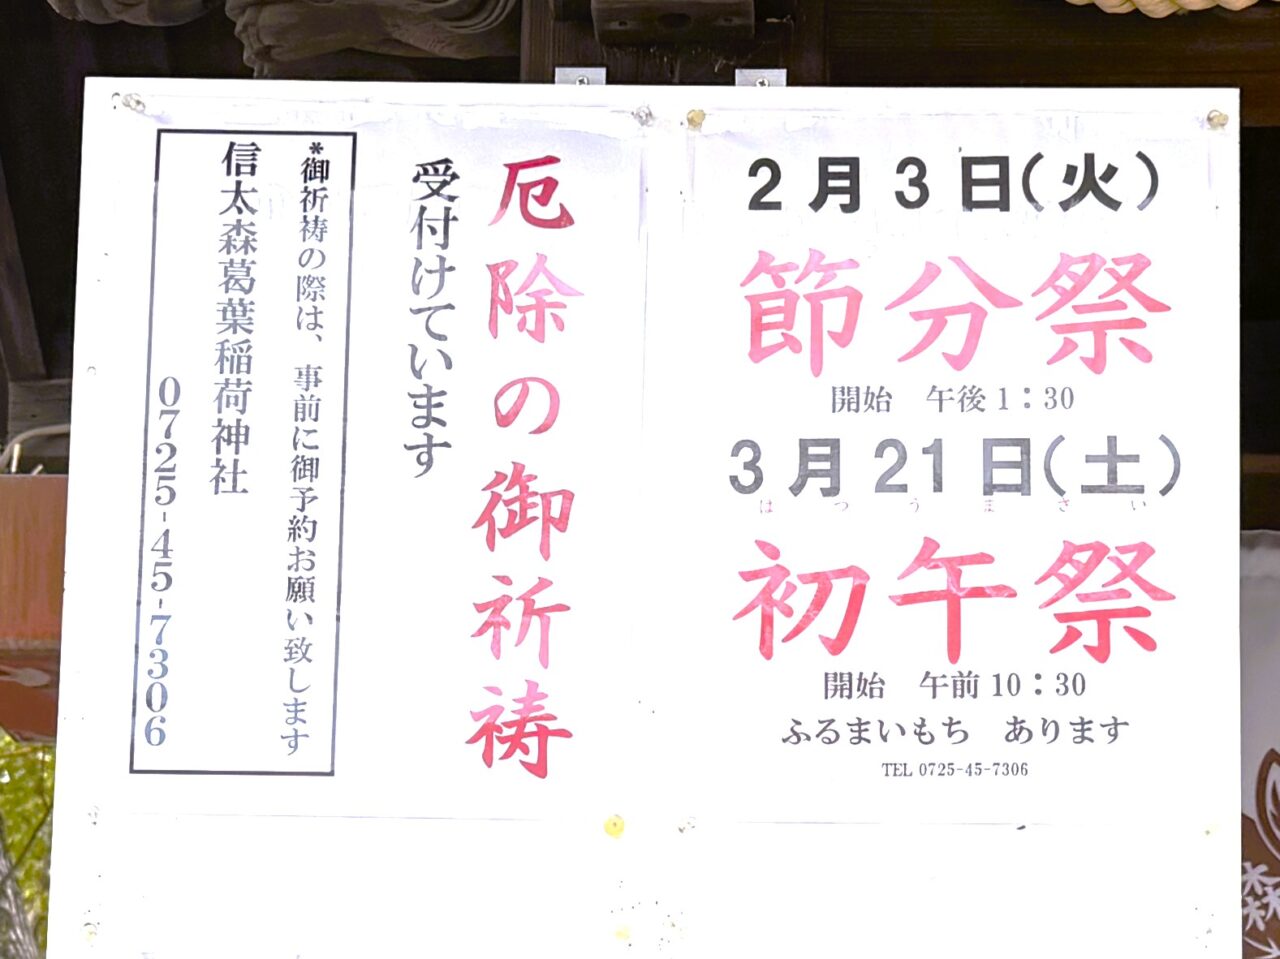 2月3日(火)
節分祭
開始　午後1：30
3月21日(土)
はつうまさい
初午祭
開始　午前10：30
ふるまいもち　あります
TEL 0725-45-7306
厄除の御祈祷
受付けています
*御祈祷の際は、事前に御予約お願い致します
信太森葛葉稲荷神社
0725-45-7306